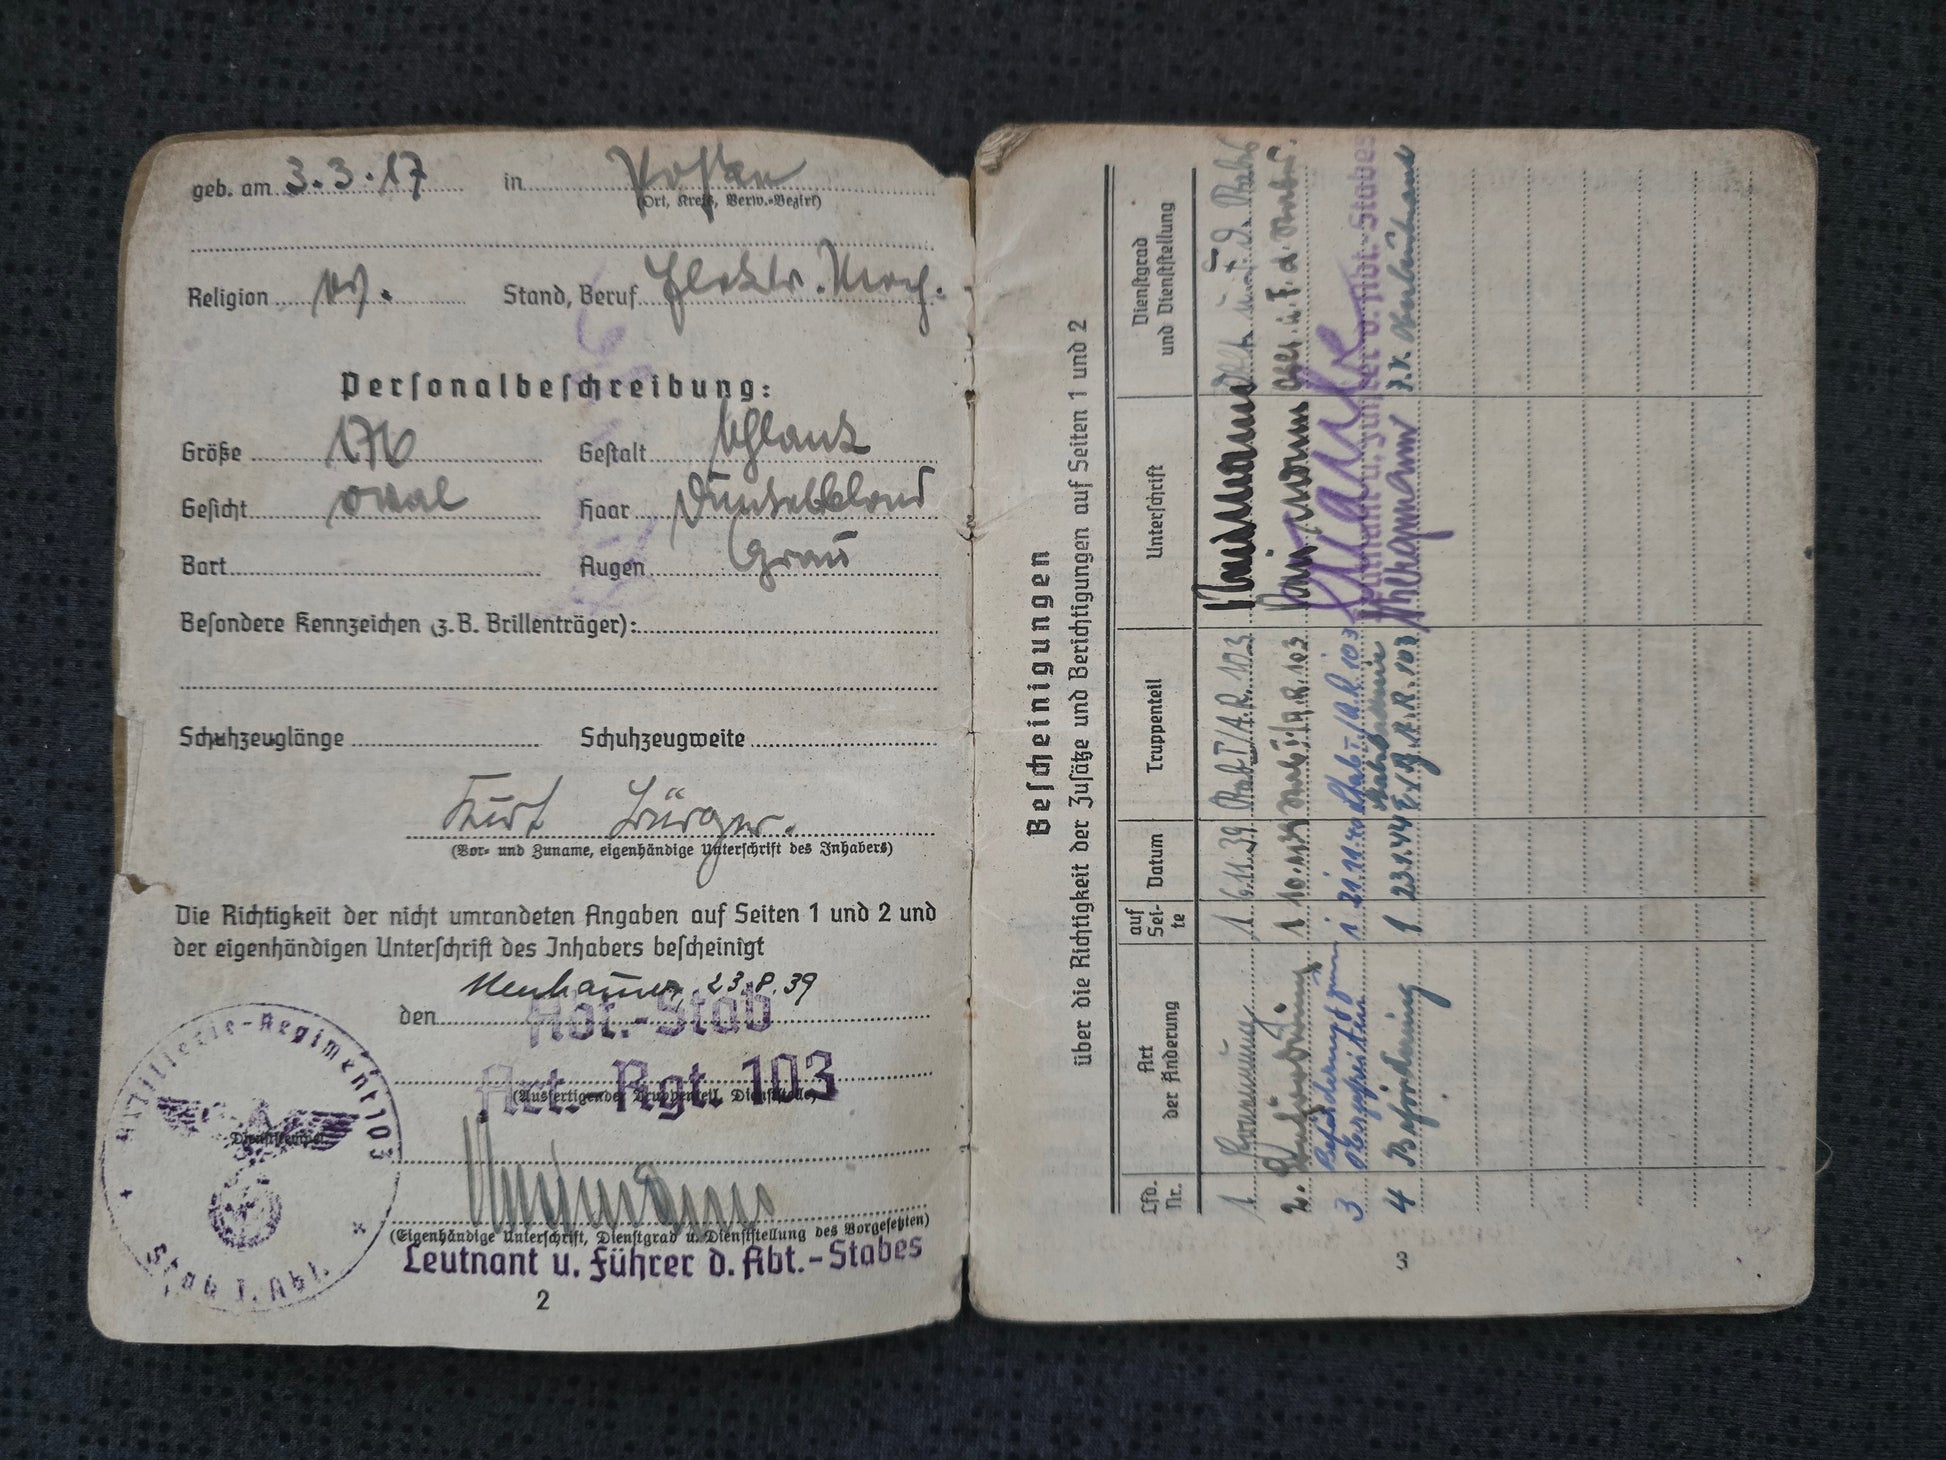 geb. am 3.3.17 in
(Ort, Kreis, Verw.-Bezirk)
Religion ev. Stand, Beruf Elektr. Mech.
Personalbeschreibung:
Größe 176 Gestalt schlank
Gesicht oval Haar dunkelblond
Bart Augen grau
Besondere Kennzeichen (z.B. Brillenträger):
Schuhzeuglänge Schuhzeugweite
Kurt Bürger.
(Vor- und Zuname, eigenhändige Unterschrift des Inhabers)
Die Richtigkeit der nicht umrandeten Angaben auf Seiten 1 und 2 und
der eigenhändigen Unterschrift des Inhabers bescheinigt
den 23.8.39
Abt.-Stab
Art. Rgt. 103
(Ausfertigender Truppenteil, Dienststelle)
Artillerie-Regiment 103
Stab I. Abt.
Dienststempel
(Eigenhändige Unterschrift, Dienstgrad u. Dienststellung des Vorgesetzten)
Leutnant u. Führer d. Abt.-Stabes
2
Bescheinigungen
über die Richtigkeit der Zusätze und Berichtigungen auf Seiten 1 und 2
Lfd. Nr. Art der Änderung auf Seite Datum Truppenteil Unterschrift Dienstgrad und Dienststellung
1 Ernennung 1 6.11.39 A.R. 103
2. 1 A.R. 103
3 Beförderung zum Obergefreiten 1 21.11.40 Stab I./A.R. 103 Leutnant u. Führer d. Abt.-Stabes
4 Beförderung 1 23.1.44 A.R. 103
3